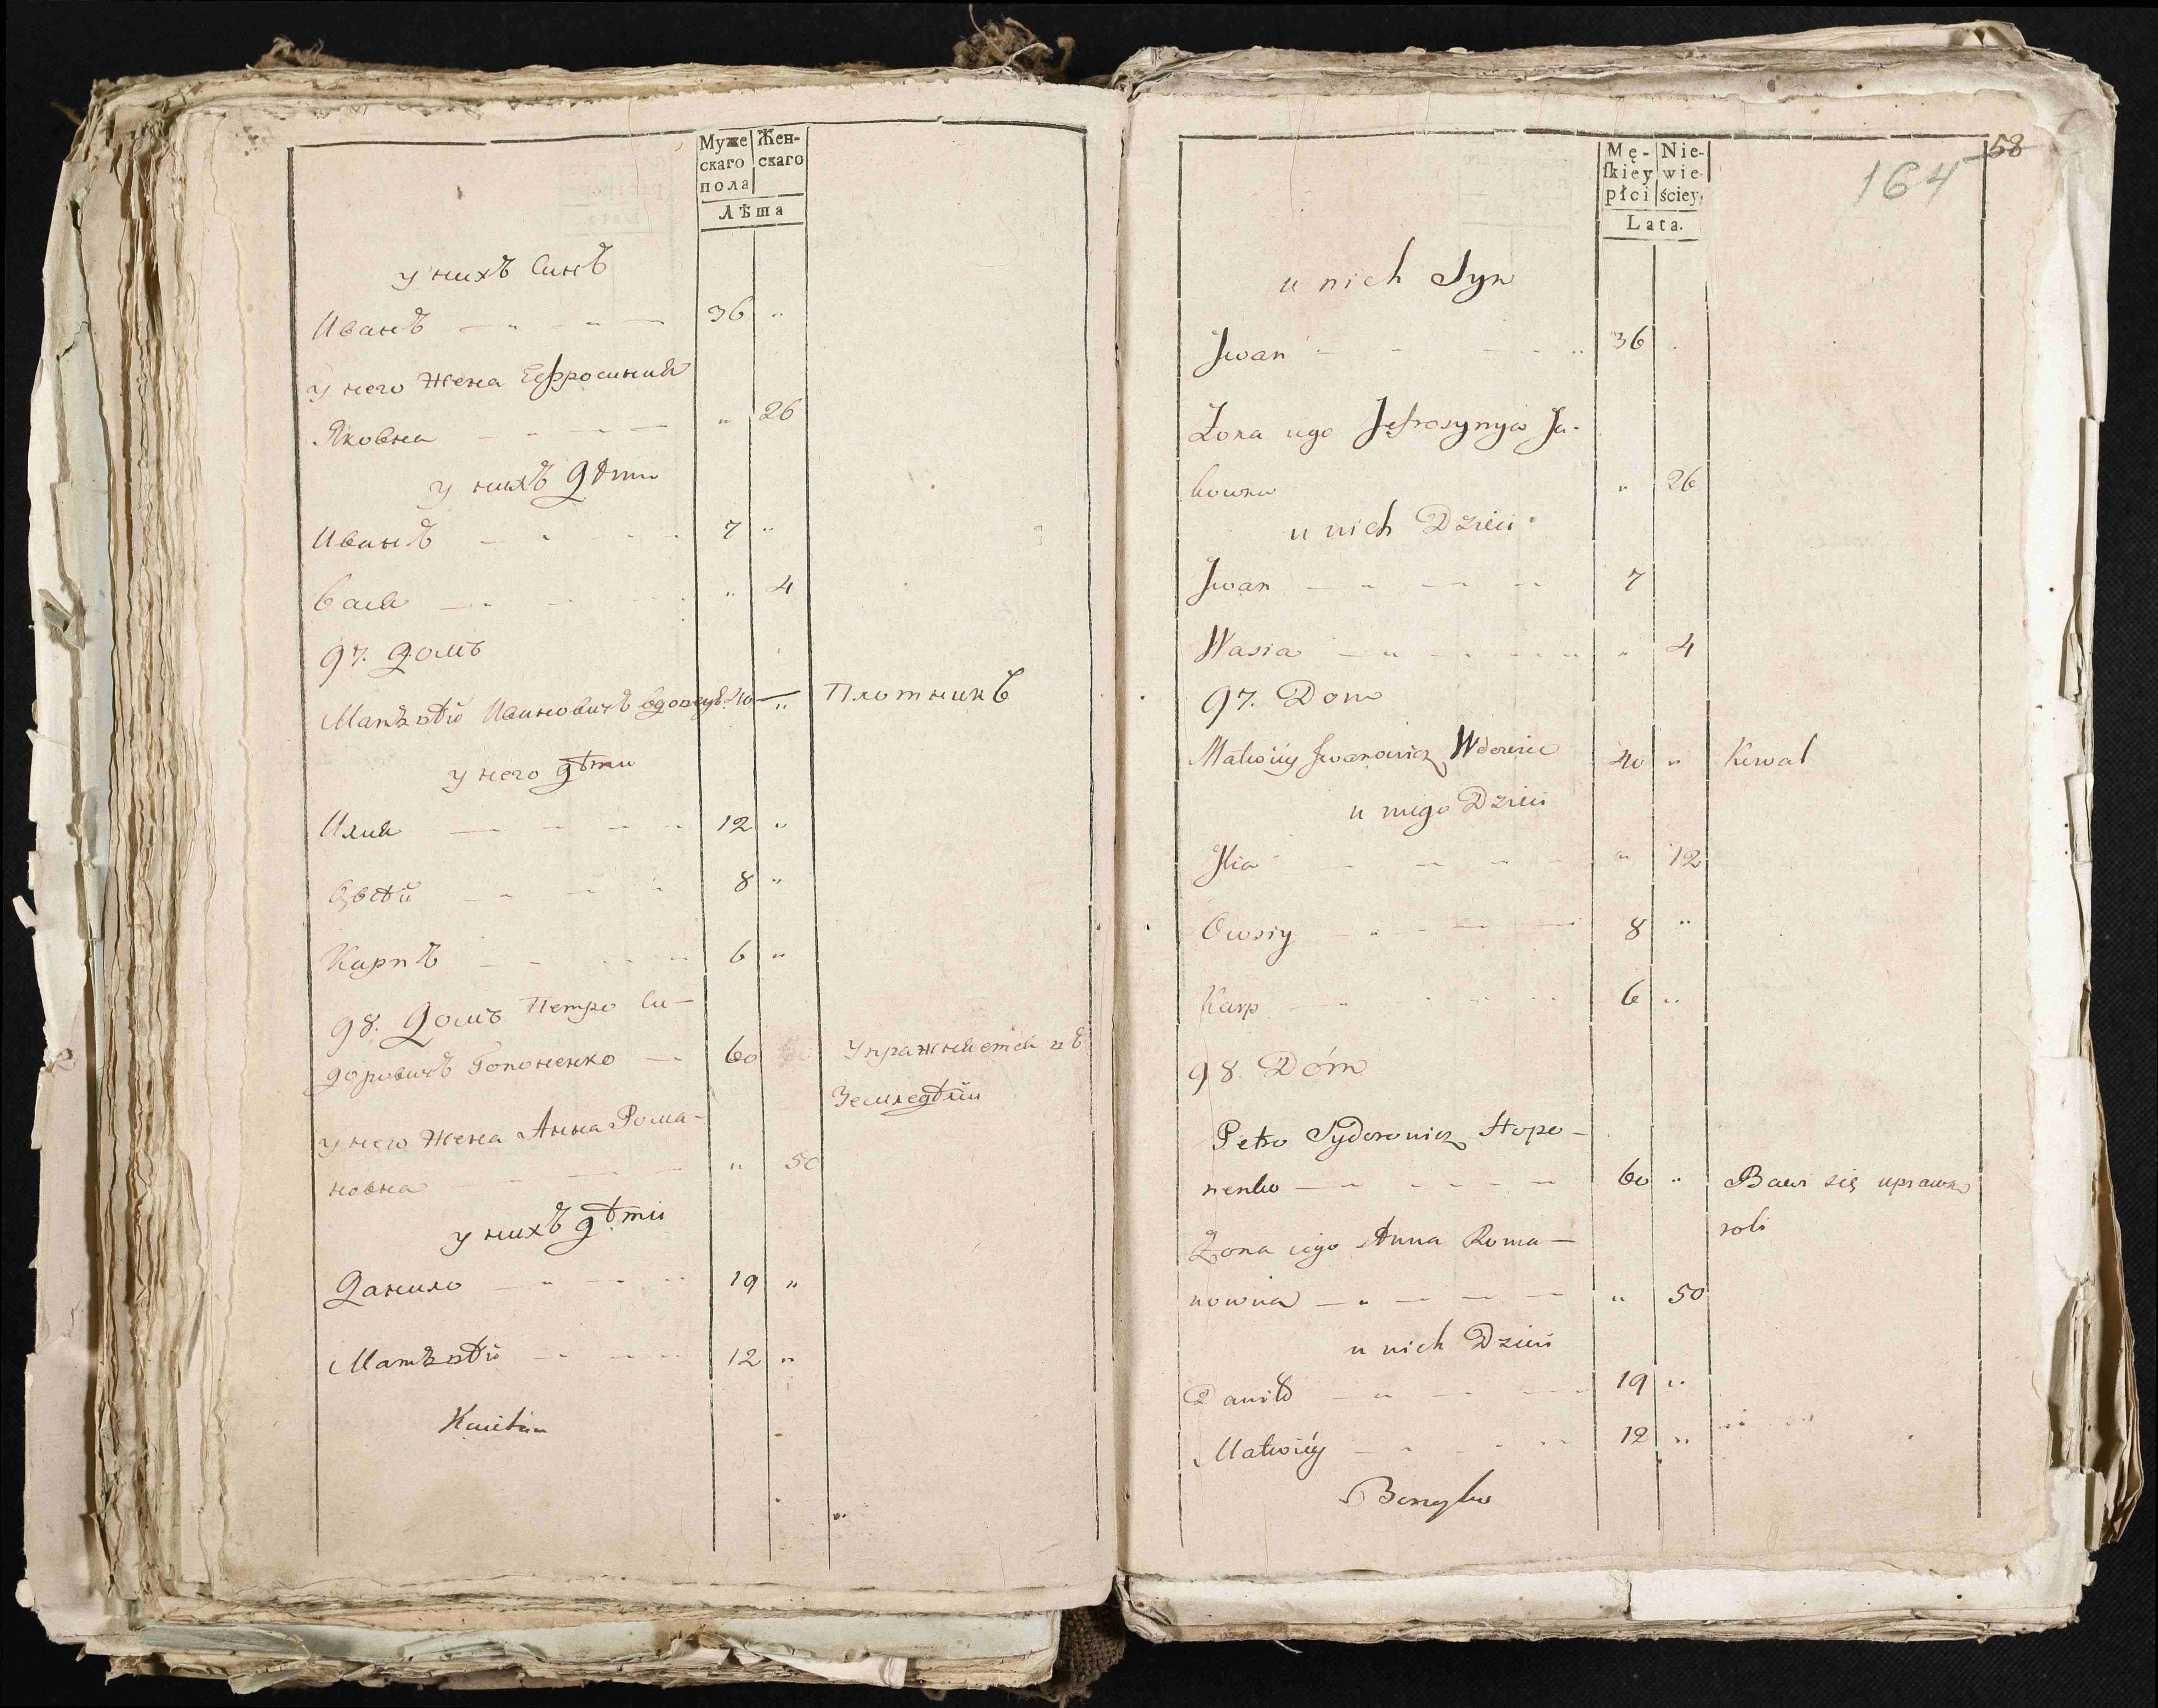 Муже
скаго
пола
Жен-
скаго
Лѣта
у нихъ Синъ
Иванъ 36 "
у него Жена Ефросиния
Яковна " 26
у нихъ Дѣти
Иванъ 7 "
Вася " 4
97. Домъ
Матвѣй Ивановичъ вдовецъ 40 " Плотникъ
у него дѣти
Илия 12 "
Овсѣй 8 "
Карпъ 6 "
98. Домъ Петро Си-
доровичъ Гопоненко 60 Упражняется въ
Земледѣлии
у него Жена Анна Рома-
новна " 50
у нихъ дѣти
Данило 19 "
Матвѣй 12 "
58
164
Mę-
ſkiey
płci
Nie-
wie-
ściey.
Lata.
u nich Syn
Jwan 36
Żona iego Jefrosynya Ja-
kowna " 26
u nich Dzieci
Jwan 7
Wasia " 4
97. Dom
Matwiiy Jwanowicz Wdowiec 40 " Kowal
u niego Dzieci
Jlia " 12
Owsiy 8 "
Karp 6 "
98. Dóm
Petro Sydorowicz Hopo-
nenko 60 " Bawi się uprawą
roli
Żona iego Anna Roma-
nowna " 50
u nich Dzieci
Daniło 19 "
Matwiiy 12 "